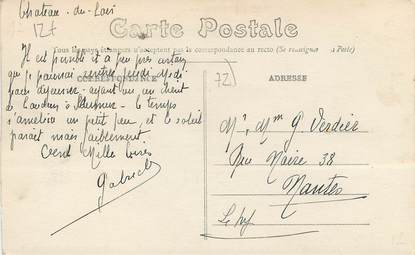 Chateau-du-Loir
12f
Carte Postale
Tous les pays étrangers n'acceptent pas la correspondance au recto (Se renseigner à la Poste)
CORRESPONDANCE
ADRESSE
72
Il est possible et à peu près certain
que je pourrai rentrer jeudi midi
pour déjeuner - ayant un client
le temps
s'améliore un petit peu, et le soleil
parait mais faiblement
Cent Mille bises
Gabriel
Mr, Mme G. Verdier
Rue Noire 38
Nantes